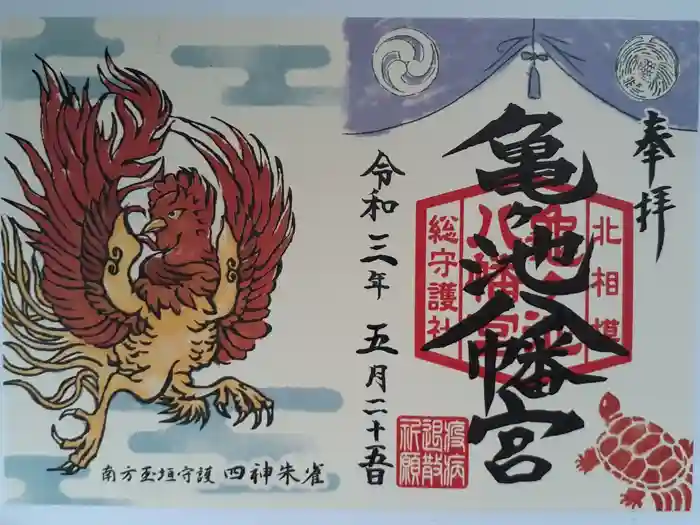 奉拝
亀ヶ池八幡宮
北相模
亀ヶ池
八幡宮
総守護社
令和三年 五月二十五日
疫病
退散
祈願
南方玉垣守護 四神朱雀